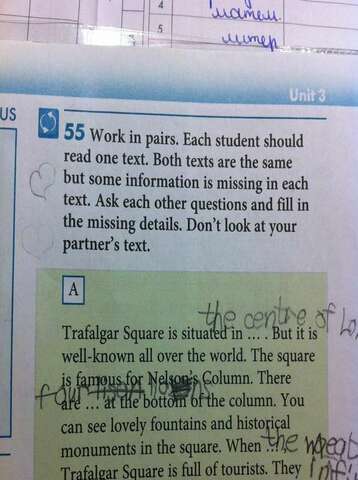 4
матем.
5
литер
Unit 3
US
55 Work in pairs. Each student should
read one text. Both texts are the same
but some information is missing in each
text. Ask each other questions and fill in
the missing details. Don't look at your
partner's text.
A
the centre of Lo
Trafalgar Square is situated in ... . But it is
well-known all over the world. The square
is famous for Nelson's Column. There
four lions
are ... at the bottom of the column. You
can see lovely fountains and historical
monuments in the square. When ...
the weat
Trafalgar Square is full of tourists. They